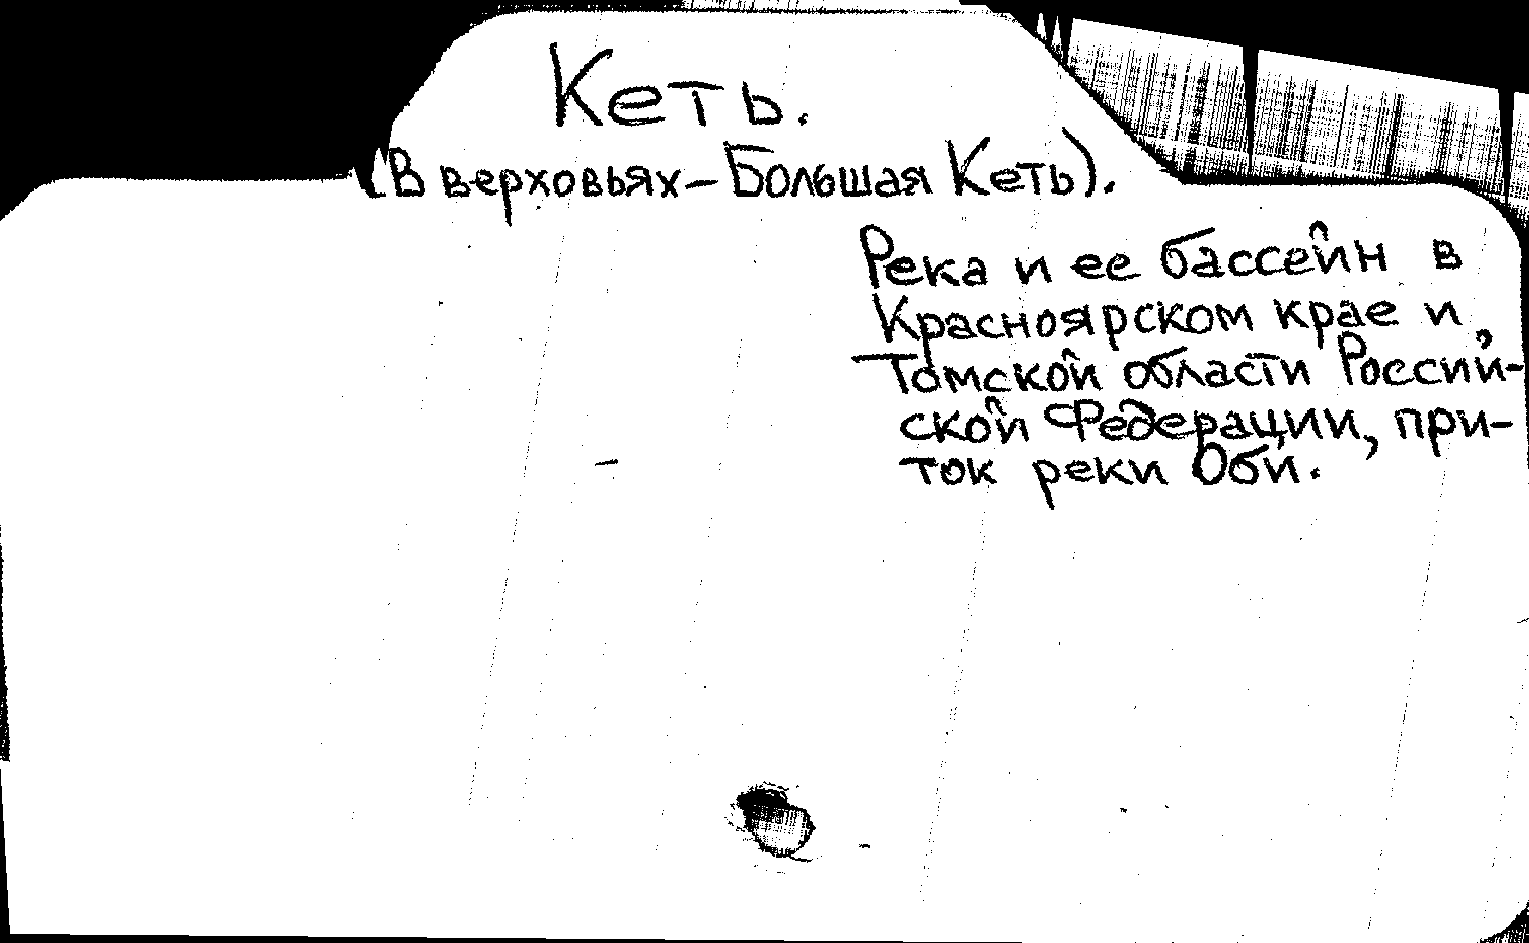 Кеть.
(В верховьях – Большая Кеть).
Река и ее бассейн в
Красноярском крае и
Томской области Россий-
ской Федерации, при-
ток реки Оби.